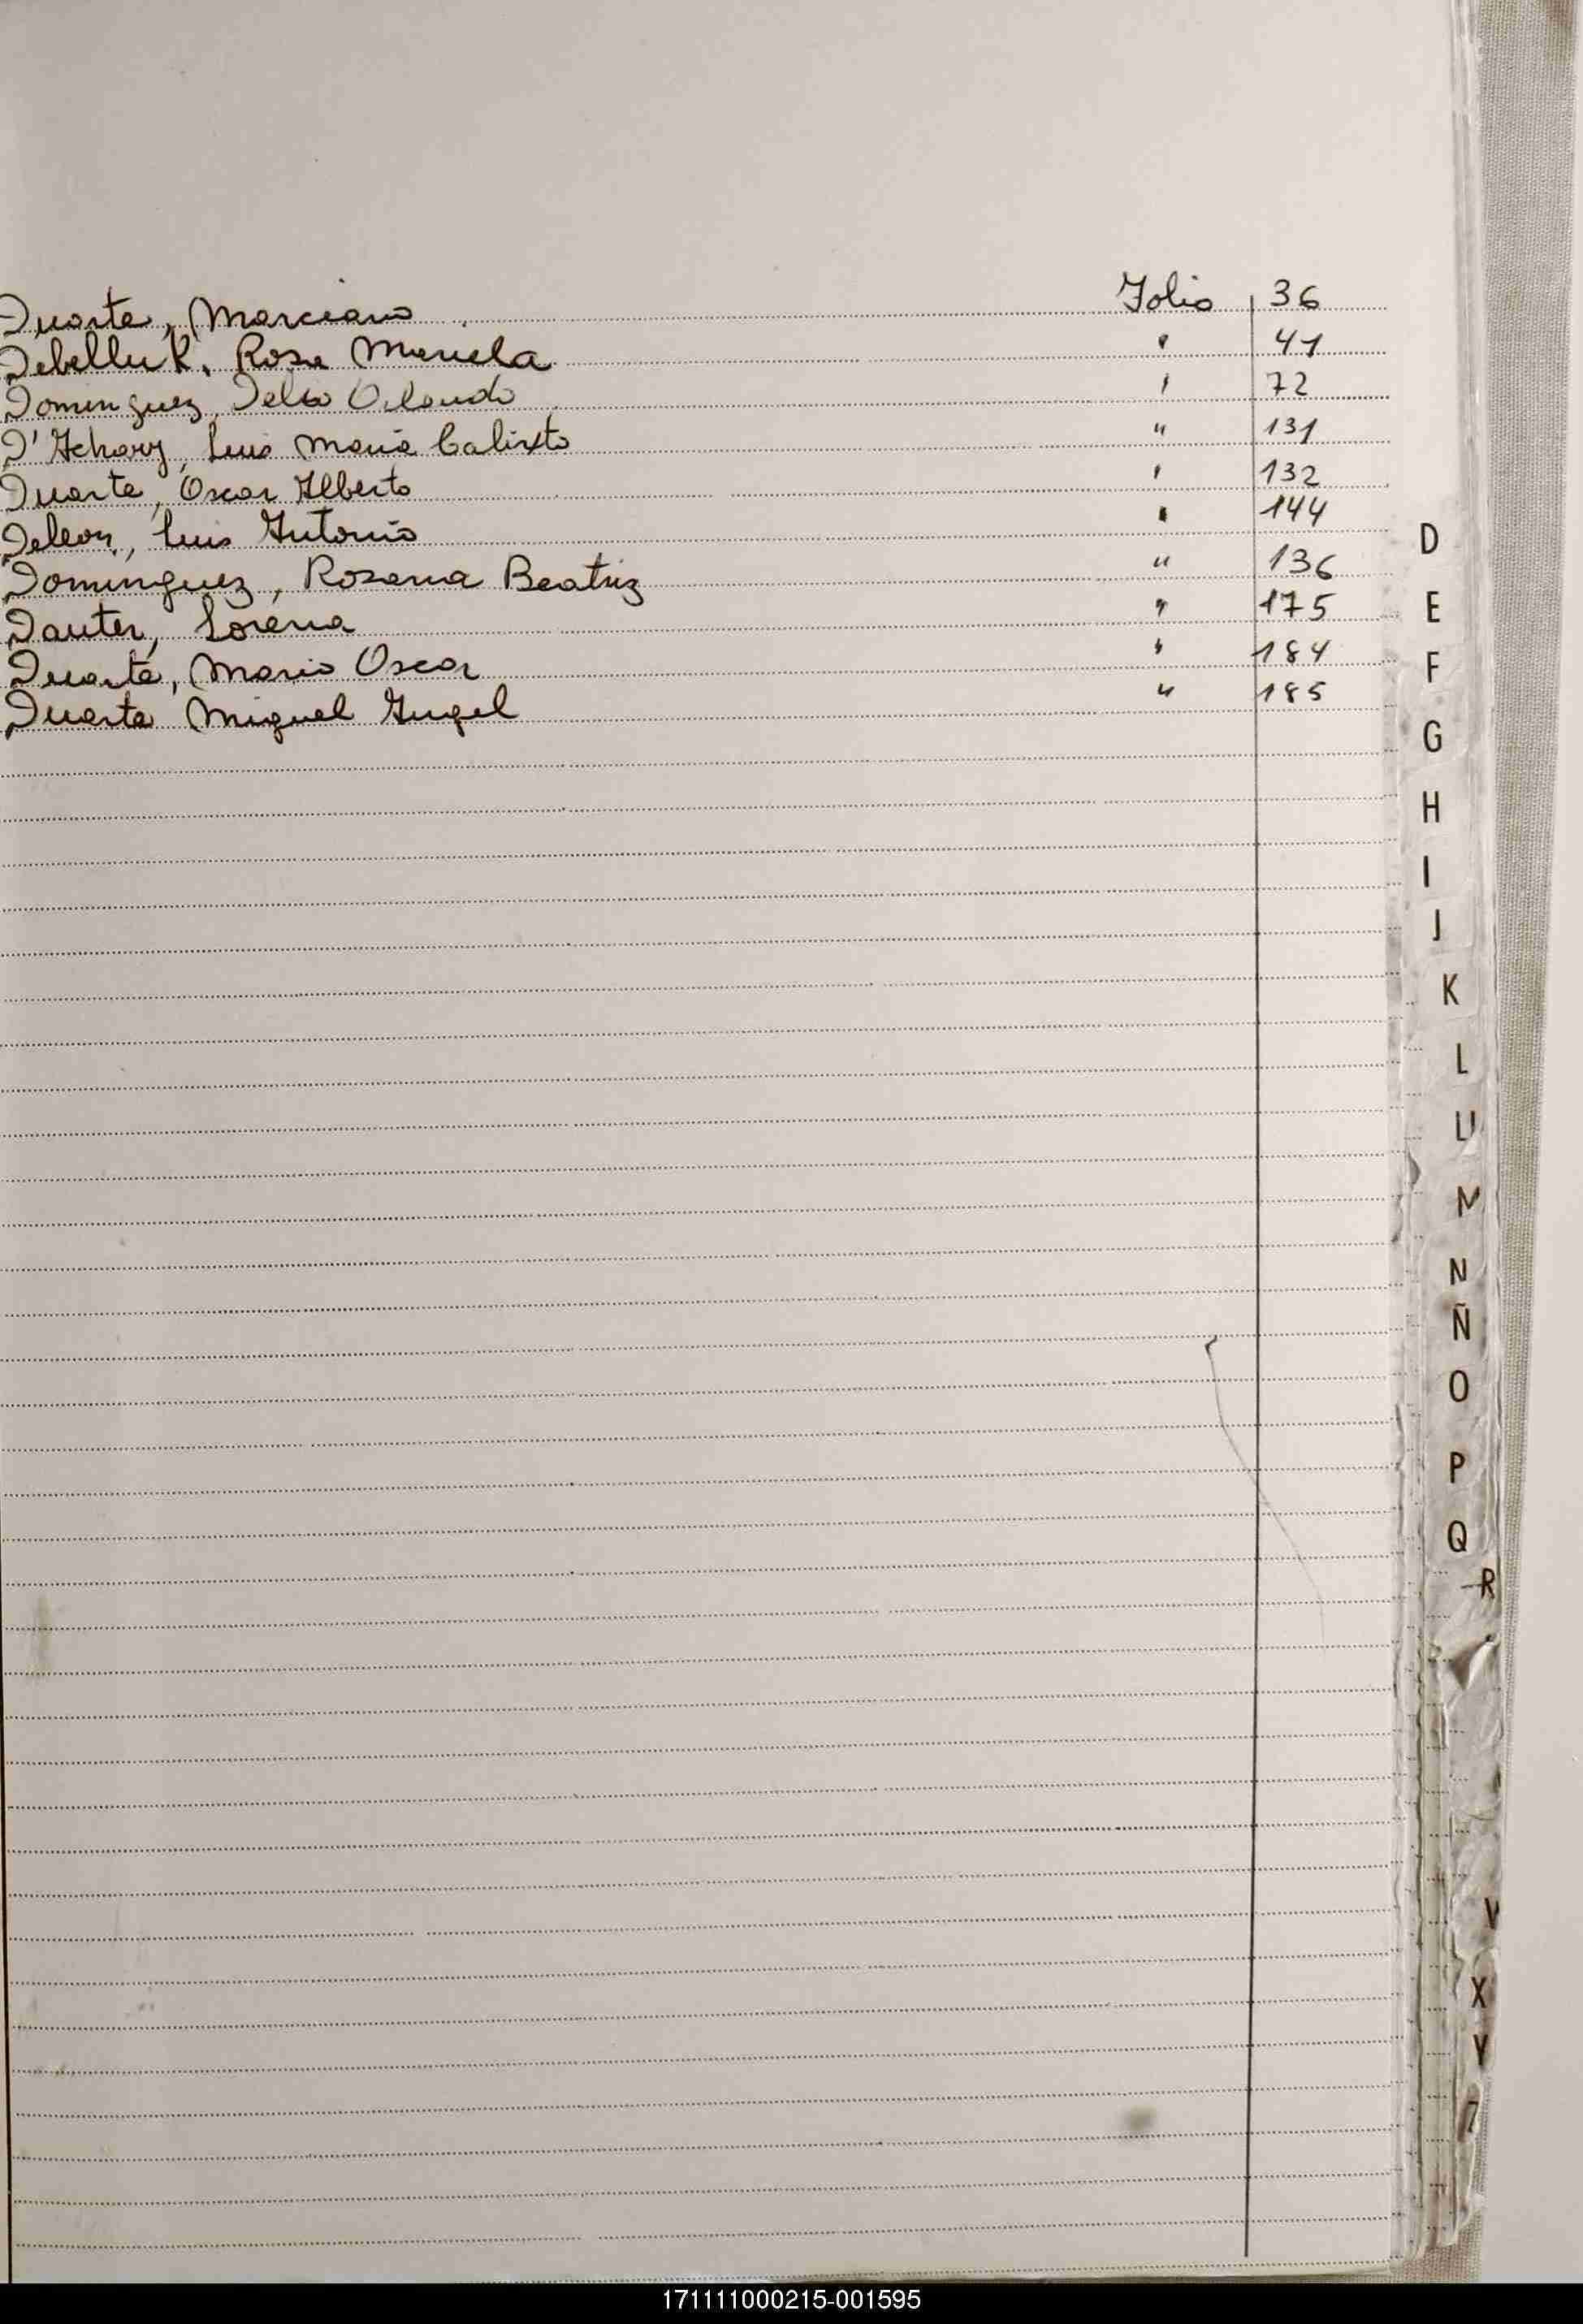 Duarte, Marciano Folio 36
Debelluk, Rosa Mariela " 41
Dominguez, Delso Orlando " 72
D'Achary, Luis Maria Calixto " 131
Duarte, Oscar Alberto " 132
Deleon, Luis Antonio " 144
Dominguez, Rosana Beatriz " 136
Dauter, Lorena " 175
Duarte, Mario Oscar " 184
Duarte Miguel Angel " 185
D
E
F
G
H
I
J
K
L
LL
M
N
Ñ
O
P
Q
R
V
X
Y
Z
171111000215-001595